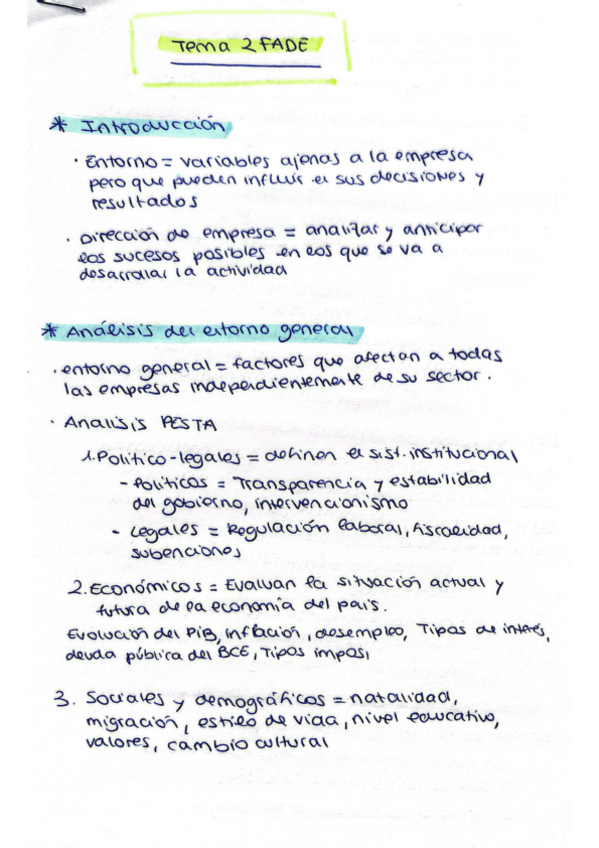 Tema 2 FADE
* Introducción
· Entorno = variables ajenas a la empresa
pero que pueden influir en sus decisiones y
resultados
· Dirección de empresa = analizar y anticipar
los sucesos posibles en los que se va a
desarrollar la actividad
* Análisis del entorno general
· entorno general = factores que afectan a todas
las empresas independientemente de su sector.
· Analisis PESTA
1. Político-legales = definen el sist. institucional
- Políticos = Transparencia y estabilidad
del gobierno, intervencionismo
- Legales = Regulación laboral, fiscalidad,
subenciones
2. Económicos = Evaluan la situación actual y
futura de la economía del pais.
Evolución del PiB, inflación, desempleo, Tipos de interés,
deuda pública del BCE, Tipos impos,
3. Sociales y demográficos = natalidad,
migración, estilo de vida, nivel educativo,
valores, cambio cultural